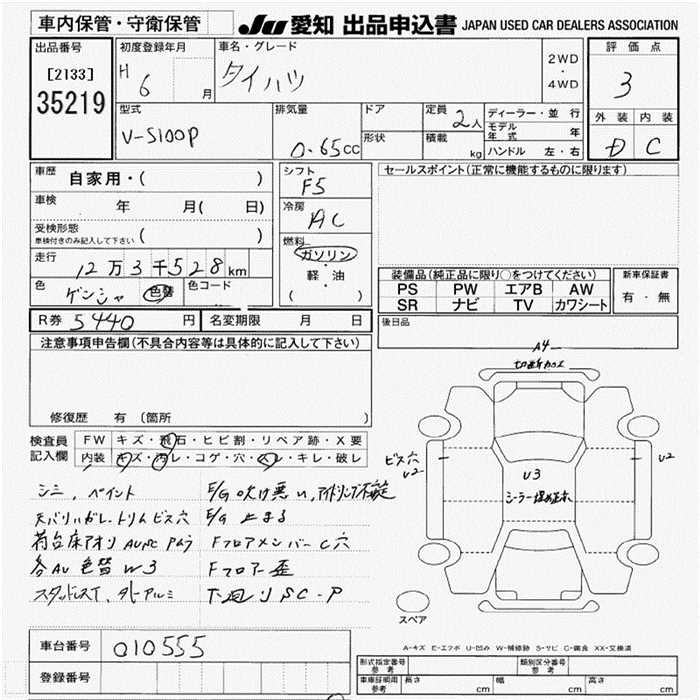 車内保管・守衛保管
JU 愛知 出品申込書 JAPAN USED CAR DEALERS ASSOCIATION
出品番号
[2133]
35219
初度登録年月
H 6 月
車名・グレード
ダイハツ
2WD
・
4WD
評価点
3
外装 内装
D C
型式
V-S100P
排気量
0.65cc
ドア
形状
定員 2人
積載 kg
ディーラー・並行
モデル年式 年
ハンドル 左・右
車歴 自家用・( )
車検 年 月( 日)
受検形態
車検付きのみ記入して下さい ( )
走行 12万3千528km
色 ゲンシャ 色替 色コード
シフト
F5
冷房
AC
燃料
ガソリン
・
軽・油
( )
セールスポイント(正常に機能するものに限ります)
装備品(純正品に限り〇をつけてください)
PS PW エアB AW
SR ナビ TV カワシート
新車保証書
有・無
R券 5440円 名変期限 月 日
後日品
注意事項申告欄(不具合内容等は具体的に記入して下さい)
修復歴 有(箇所 )
検査員
記入欄
FW キズ・飛石・ヒビ割・リペア跡・X要
内装 キズ・汚レ・コゲ・穴・スレ・キレ・破レ
シミ、ペイント
天バリハガレ、トリムビス穴
荷台床アオリ
各AU色替W3
スタッドレスT、
E/G吹け悪い、アイドリング不定
E/G止まる
Fフロアメンバー C穴
Fフロアー歪
下廻りSC-P
A4
切断加工
ビス穴
U2
U3
シーラー埋め
U2
スペア
A-キズ E-エクボ U-凹み W-補修跡 S-サビ C-腐食 XX-交換済
車台番号 010555
登録番号
形式指定番号
参考
類別区分番号
参考
車庫証明用
参考
長さ cm 幅 cm 高さ cm